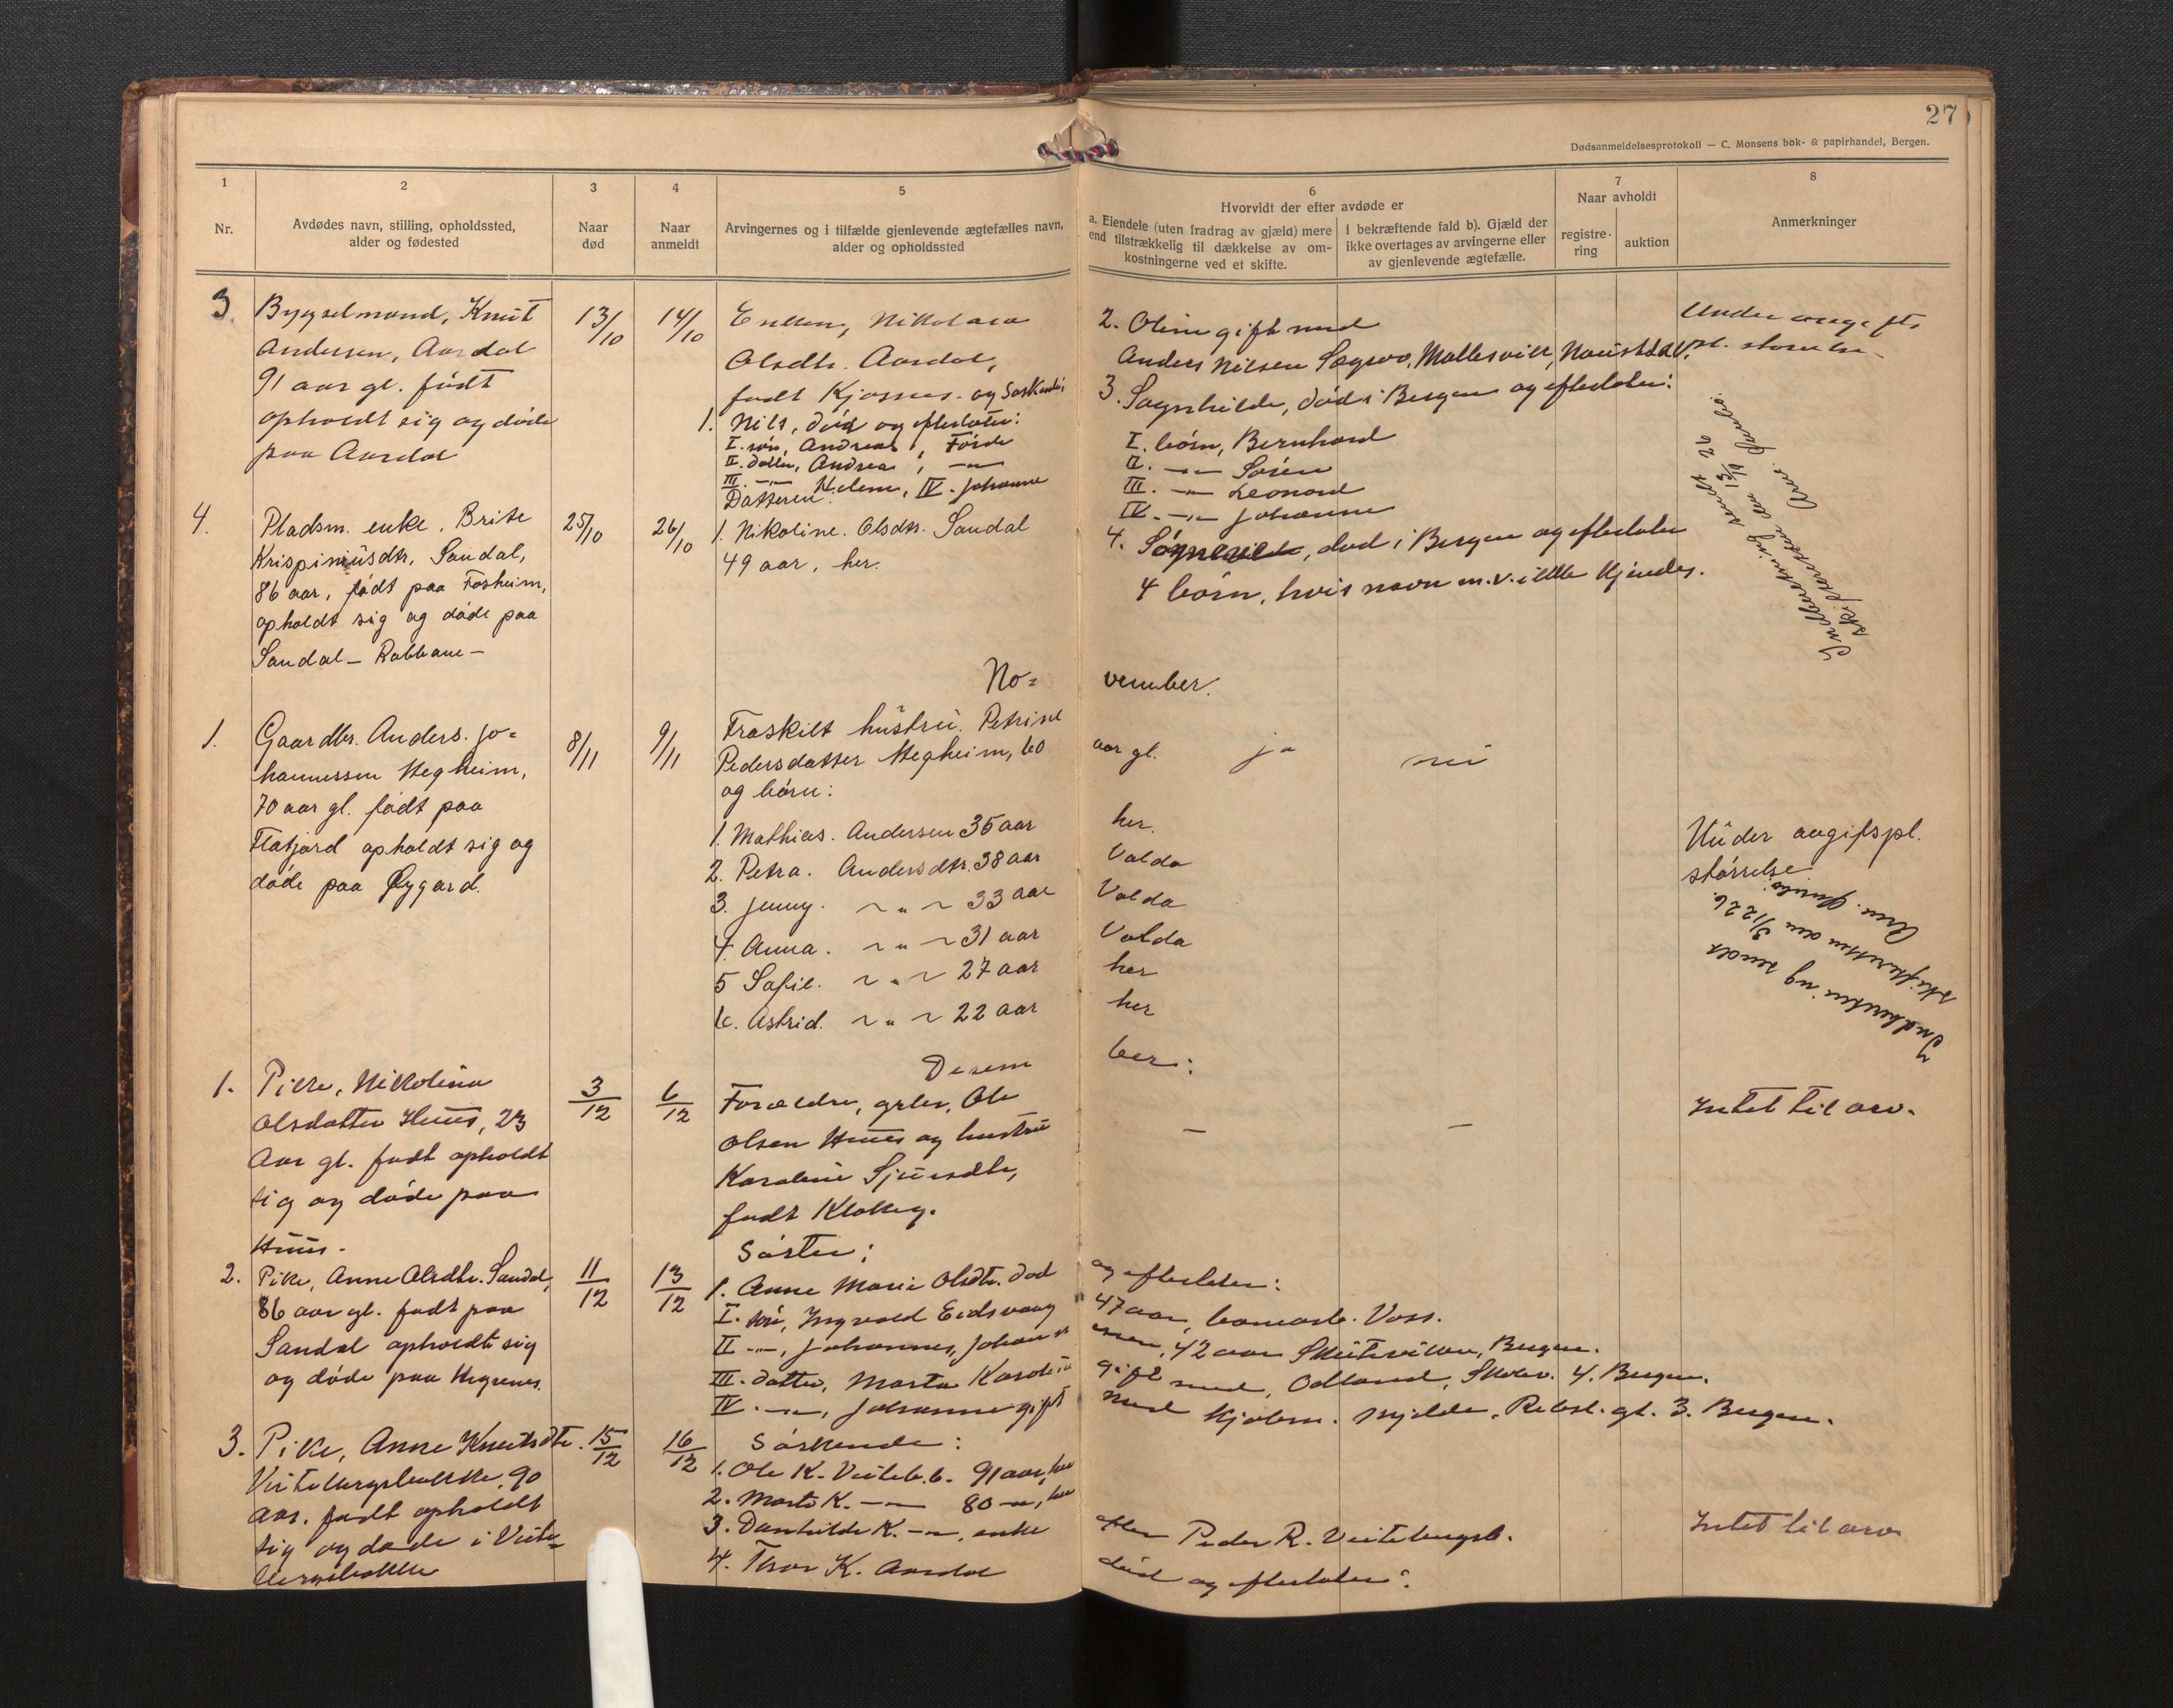 27
Dødsanmeldelsesprotokoll — C. Monsens bok- & papirhandel, Bergen.
1
Nr.
2
Avdødes navn, stilling, opholdssted,
alder og fødested
3
Naar
død
4
Naar
anmeldt
5
Arvingernes og i tilfælde gjenlevende ægtefælles navn,
alder og opholdssted
6
Hvorvidt der efter avdøde er
a. Eiendele (uten fradrag av gjæld) mere
end tilstrækkelig til dækkelse av om-
kostningerne ved et skifte.
I bekræftende fald b). Gjæld der
ikke overtages av arvingerne eller
av gjenlevende ægtefælle.
7
Naar avholdt
registre-
ring
auktion
8
Anmerkninger
3.
Bygselmand, Knut
Andersen, Aardal
91 aar gl. født
opholdt sig og døde
paa Aardal
13/10
14/10
Enken, Nikolava
Olsdtr. Aardal,
født Kjøsnes. og Søskende:
1. Nils, død og efterlater:
I. søn, Andreas, Førde
II. datter, Andrea, —"—
III. —"— Helene, IV. Johanne
2. Oline gift med
Anders Nilsen Sægrov, Mallesvik, Naustdal.
3. Sagnhilde, død i Bergen og efterlater:
I. børn, Bernhard
II. —"— Søren
III. —"— Leonard
IV. —"— Johanne
4. død i Bergen og efterlater
4 børn, hvis navn m.v. ikke kjendes.
Under avgifts
pl. størrelse
Indberetning sendt
skifteretten den 13/10 26
4.
Pladsm. enke. Brite
Krispiniusdtr. Sandal,
86 aar, født paa Fosheim,
opholdt sig og døde paa
Sandal – Rabbane –
25/10
26/10
Datteren:
1. Nikoline. Olsdtr. Sandal
49 aar, her.
No=vember.
1.
Gaardbr. Anders. Jo=
hannessen Hegheim,
70 aar gl. født paa
Flatjord opholdt sig og
døde paa Øygard.
8/11
9/11
Fraskilt hustru. Petrine
Pedersdatter Hegheim, 60 aar gl.
ja
nei
og børn:
1. Mathias. Andersen 35 aar her.
2. Petra. Andersdtr. 38 aar Valda
3. Jenny. ~ " ~ 33 aar Valda
4. Anna. ~ " ~ 31 aar Valda
5 Sofie. ~ " ~ 27 aar her
6. Astrid. ~ " ~ 22 aar her
Under avgiftspl.
størrelse
Indberetning sendt
skifteretten den 3/12 26.
Desember:
1.
Pike, Nikolina
Olsdatter Huus, 23
Aar gl. født opholdt
sig og døde paa
Huus.
3/12
6/12
Forældre, grbr. Ole
Olsen Huus og hustru
Karoline Sjursdtr,
født Klokkeg.
—
—
Intet til arv.
2.
Pike, Anne Olsdtr. Sandal,
86 aar gl. født paa
Sandal opholdt sig
og døde paa Hegrenes.
11/12
13/12
Søster:
1. Anne Marie Olsdtr. død og efterlater:
I. søn, Ingvald Eidsvaag 47 aar, banearb. Voss.
II —"—, Johannes, Johannessen, 42 aar Skuteviken, Bergen.
III. datter, Marta Karoline gift med, Odland, Skolev. 4. Bergen.
IV. —"—, Johanne gift med Kjøbm. Mjelde, Rebsl. gt. 3. Bergen.
3.
Pike, Anne Knutsdtr.
Veitebergsbakke, 90
aar. født opholdt
sig og døde i Veite=
bergsbakke
15/12
16/12
Søskende:
1. Ole K. Veiteb.b. 91 aar, her
2. Marte K. —"— 80 —"—, her
3. Danhilde K. —"—, enke efter Peder R. Veitebergsb.
4. Thor K. Aardal død og efterlater:
Intet til arv